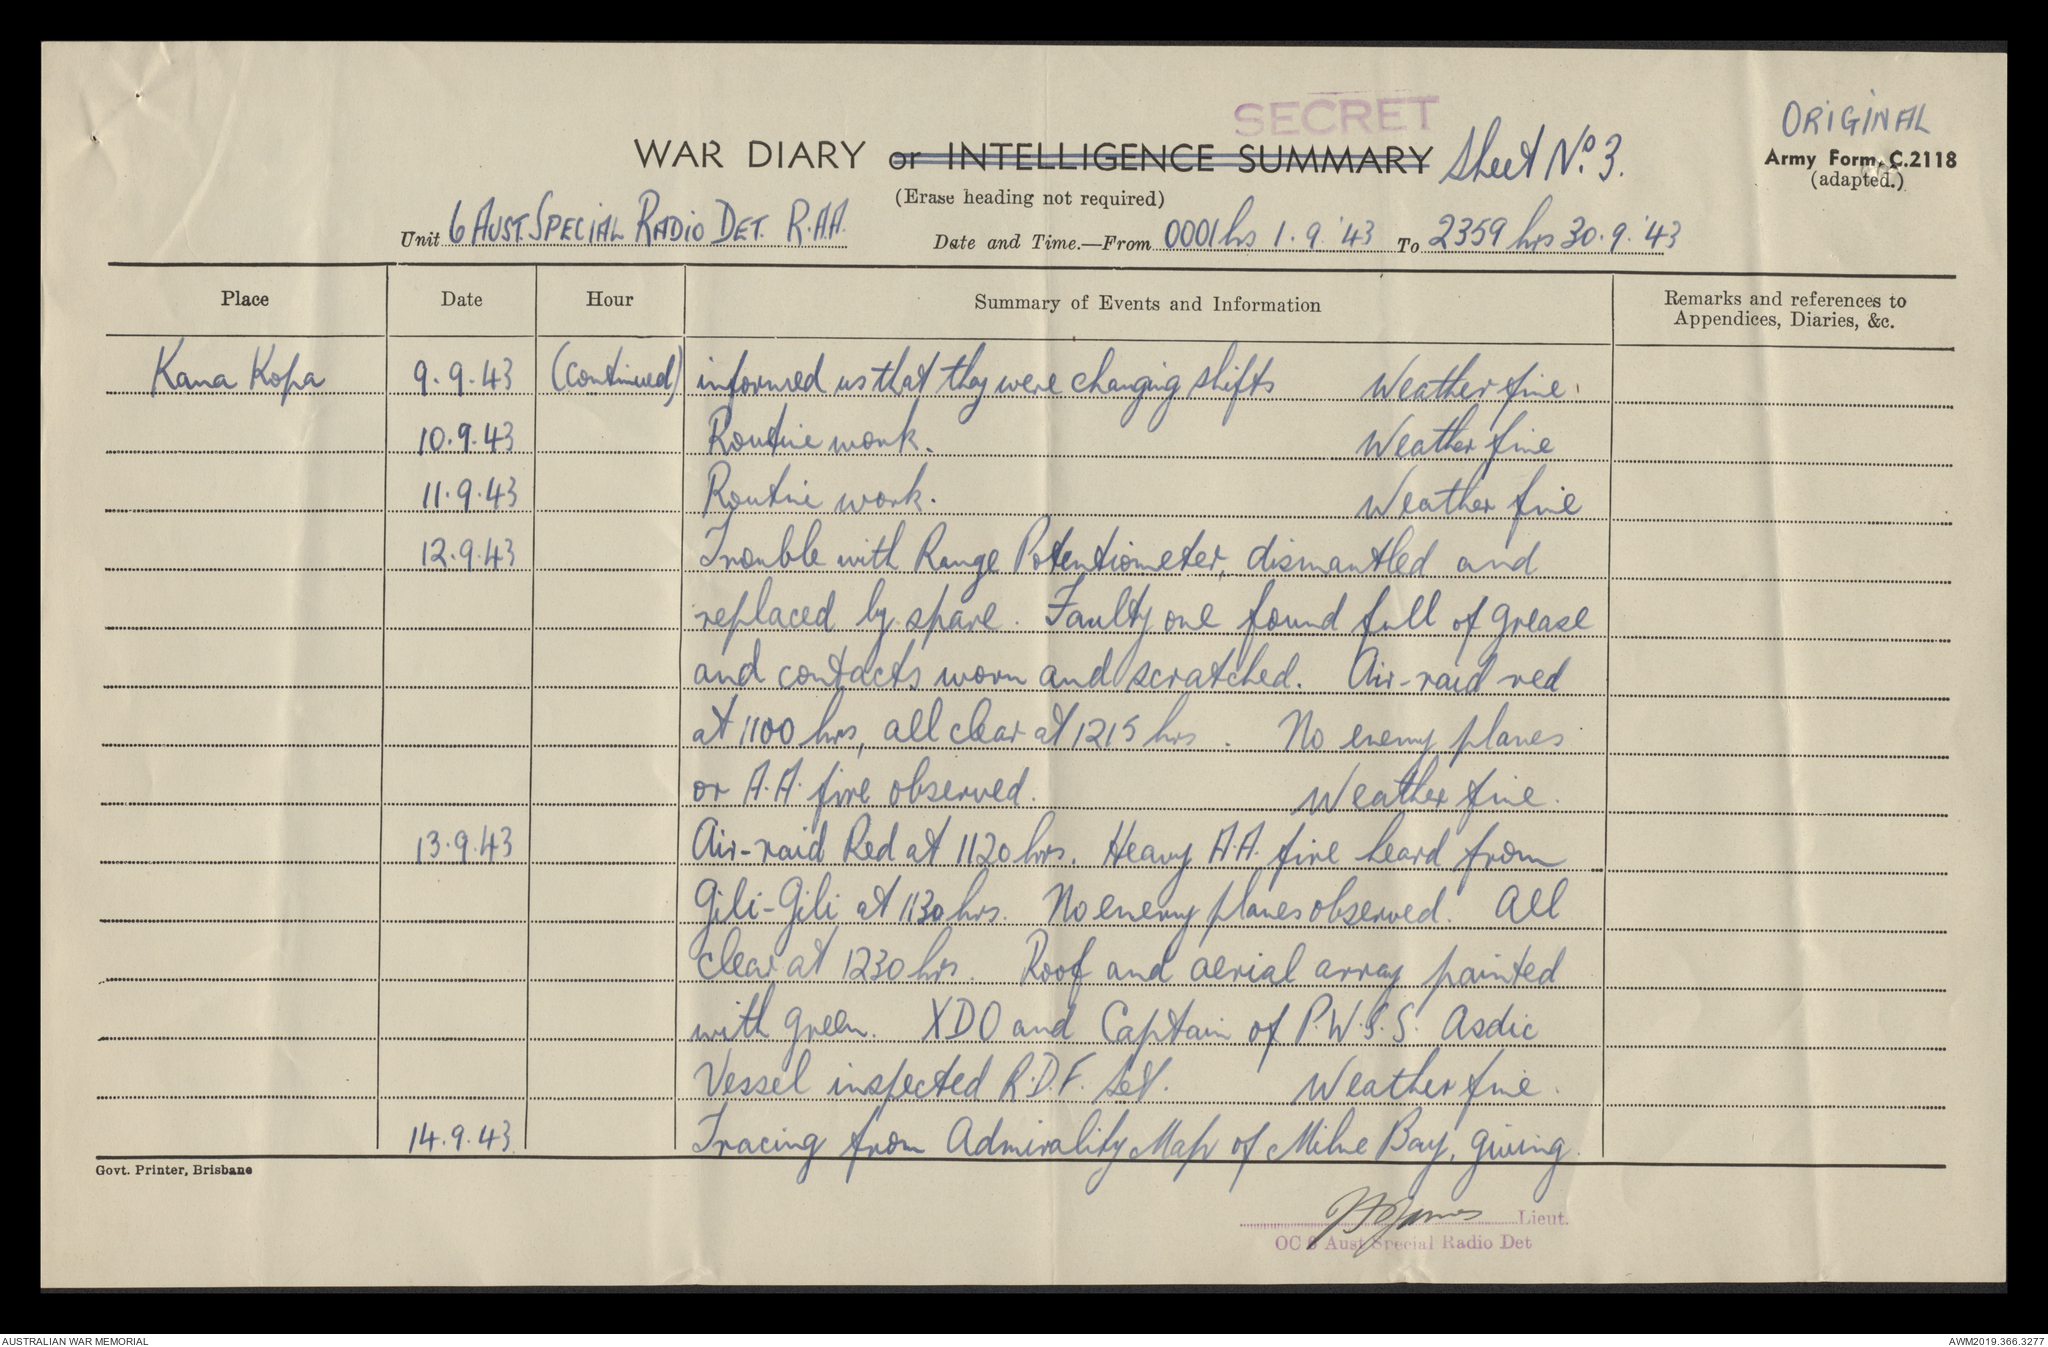 SECRET
ORIGINAL
WAR DIARY or INTELLIGENCE SUMMARY Sheet No. 3.
Army Form C.2118
(adapted.)
(Erase heading not required)
Unit 6 AUST. SPECIAL RADIO DET. R.A.A. Date and Time.—From 0001 hrs 1.9.'43 To 2359 hrs 30.9.'43
Place Date Hour Summary of Events and Information Remarks and references to Appendices, Diaries, &c.
Kana Kopa 9.9.43 (Continued) informed us that they were changing shifts Weather fine.
10.9.43 Routine work. Weather fine
11.9.43 Routine work. Weather fine
12.9.43 Trouble with Range Potentiometer, dismantled and
replaced by spare. Faulty one found full of grease
and contacts worn and scratched. Air-raid red
at 1100 hrs, all clear at 1215 hrs. No enemy planes
or A.A. fire observed. Weather fine.
13.9.43 Air-raid Red at 1120 hrs. Heavy A.A. fire heard from
Gili-Gili at 1130 hrs. No enemy planes observed. All
clear at 1230 hrs. Roof and aerial array painted
with green. XDO and Captain of P.W.S.S. Asdic
Vessel inspected R.D.F. set. Weather fine.
14.9.43 Tracing from Admirality Map of Milne Bay, giving
Govt. Printer, Brisbane
Lieut.
OC 6 Aust Special Radio Det
AUSTRALIAN WAR MEMORIAL
AWM2019.366.3277